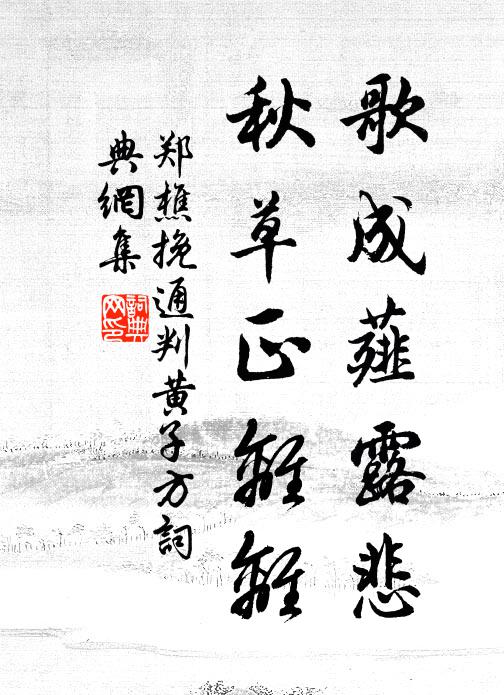 歌成薤露悲
秋草正離離
郑樵挽通判黄子方詞
典網集
詞典网印